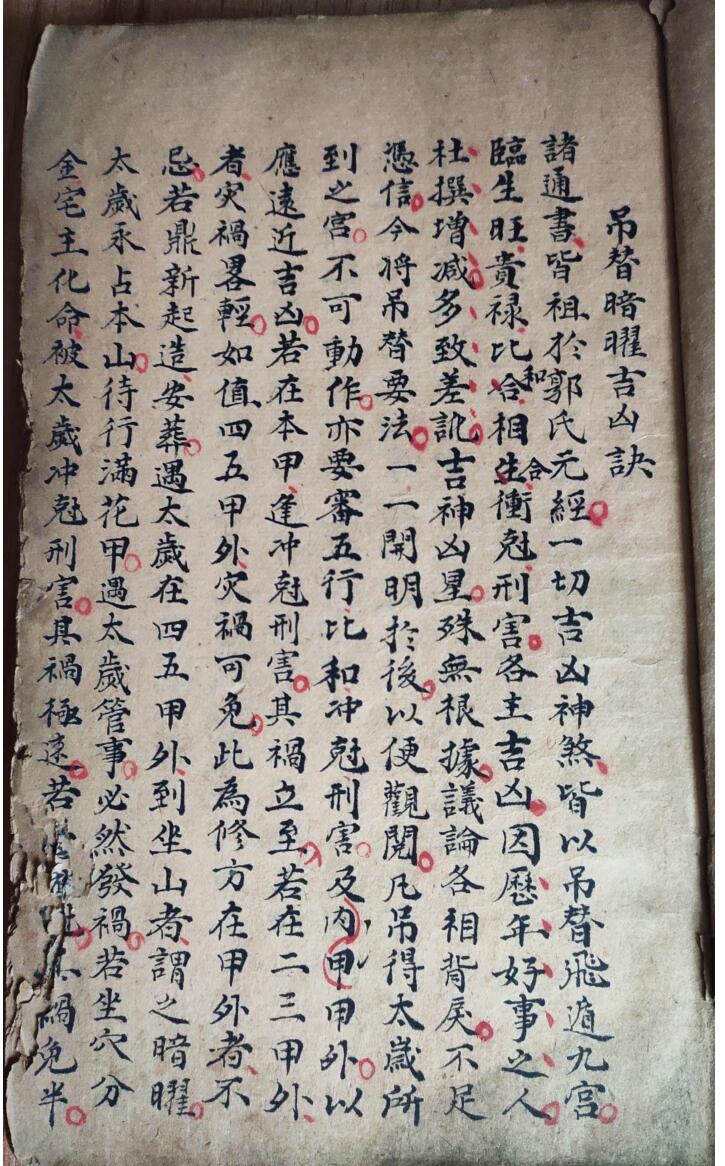 吊替暗曜吉凶訣
諸通書皆祖於郭氏元經一切吉凶神煞皆以吊替飛遁九宮
臨生旺貴禄比合和相生合衝尅刑害各主吉凶因歷年好事之人
杜撰增减多致差訛吉神凶星殊無根據議論各相背戾不足
憑信今将吊替要法一一開明於後以便觀閱凡吊得太歲所
到之宮不可動作亦要審五行比和冲尅刑害及内甲甲外以
應遠近吉凶若在本甲逢冲尅刑害其禍立至若在二三甲外
者灾禍畧輕如值四五甲外灾禍可免此為修方在甲外者不
忌若鼎新起造安葬遇太歲在四五甲外到坐山者謂之暗曜
太歲永占本山待行滿花甲遇太歲管事必然發禍若坐穴分
金宅主化命被太歲冲尅刑害其禍極速若禍免半